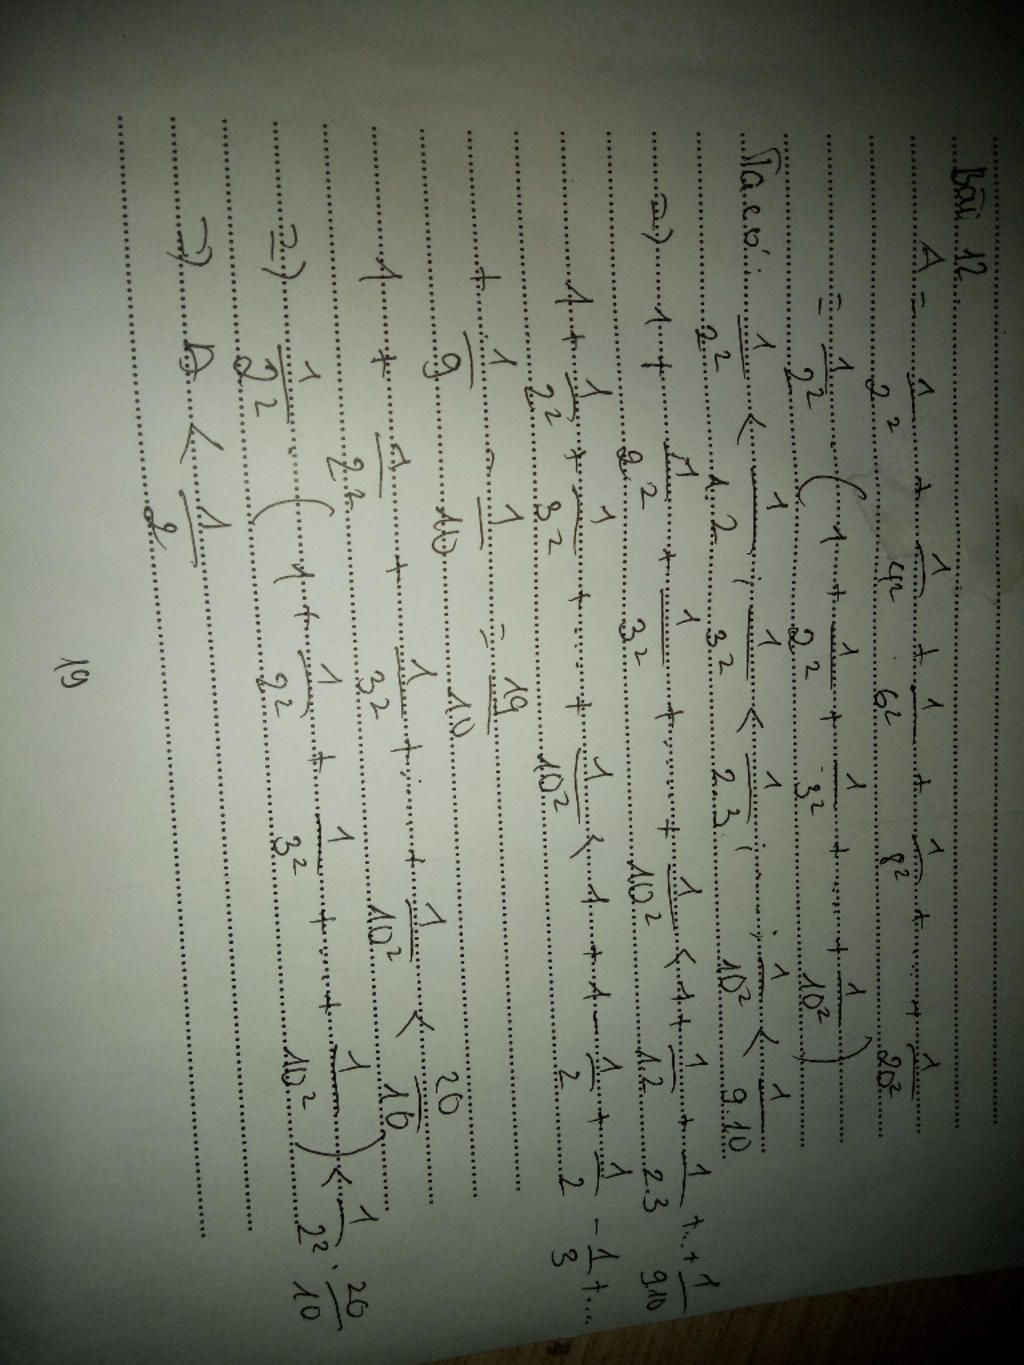 Bài 12
A = 1/2² + 1/4² + 1/6² + 1/8² + ... + 1/20²
= 1/2² ( 1 + 1/2² + 1/3² + ... + 1/10² )
Ta có: 1/2² < 1/1.2 ; 1/3² < 1/2.3 ; ... ; 1/10² < 1/9.10
=) 1 + 1/2² + 1/3² + ... + 1/10² < 1 + 1/1.2 + 1/2.3 + ... + 1/9.10
1 + 1/2² + 1/3² + ... + 1/10² < 1 + 1 - 1/2 + 1/2 - 1/3 + ...
+ 1/9 - 1/10 = 19/10
1 + 1/2² + 1/3² + ... + 1/10² < 20/10
=) 1/2² ( 1 + 1/2² + 1/3² + ... + 1/10² ) < 1/2² . 20/10
=) A < 1/2
19